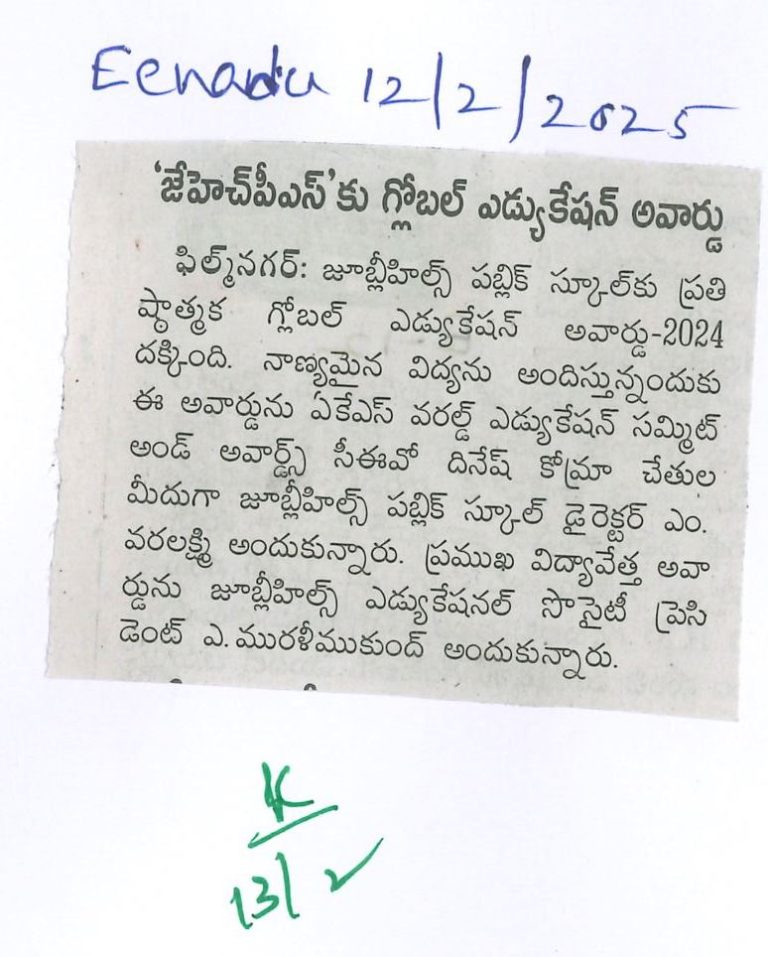 Eenadu 12/2/2025
'జేహెచ్‌పీఎస్'కు గ్లోబల్ ఎడ్యుకేషన్ అవార్డు
ఫిల్మ్‌నగర్: జూబ్లీహిల్స్ పబ్లిక్ స్కూల్‌కు ప్రతి
ష్ఠాత్మక గ్లోబల్ ఎడ్యుకేషన్ అవార్డు-2024
దక్కింది. నాణ్యమైన విద్యను అందిస్తున్నందుకు
ఈ అవార్డును ఏకేఎస్ వరల్డ్ ఎడ్యుకేషన్ సమ్మిట్
అండ్ అవార్డ్స్ సీఈవో దినేష్ కోమ్రా చేతుల
మీదుగా జూబ్లీహిల్స్ పబ్లిక్ స్కూల్ డైరెక్టర్ ఎం.
వరలక్ష్మి అందుకున్నారు. ప్రముఖ విద్యావేత్త అవా
ర్డును జూబ్లీహిల్స్ ఎడ్యుకేషనల్ సొసైటీ ప్రెసి
డెంట్ ఎ. మురళీముకుంద్ అందుకున్నారు.
K
13/2